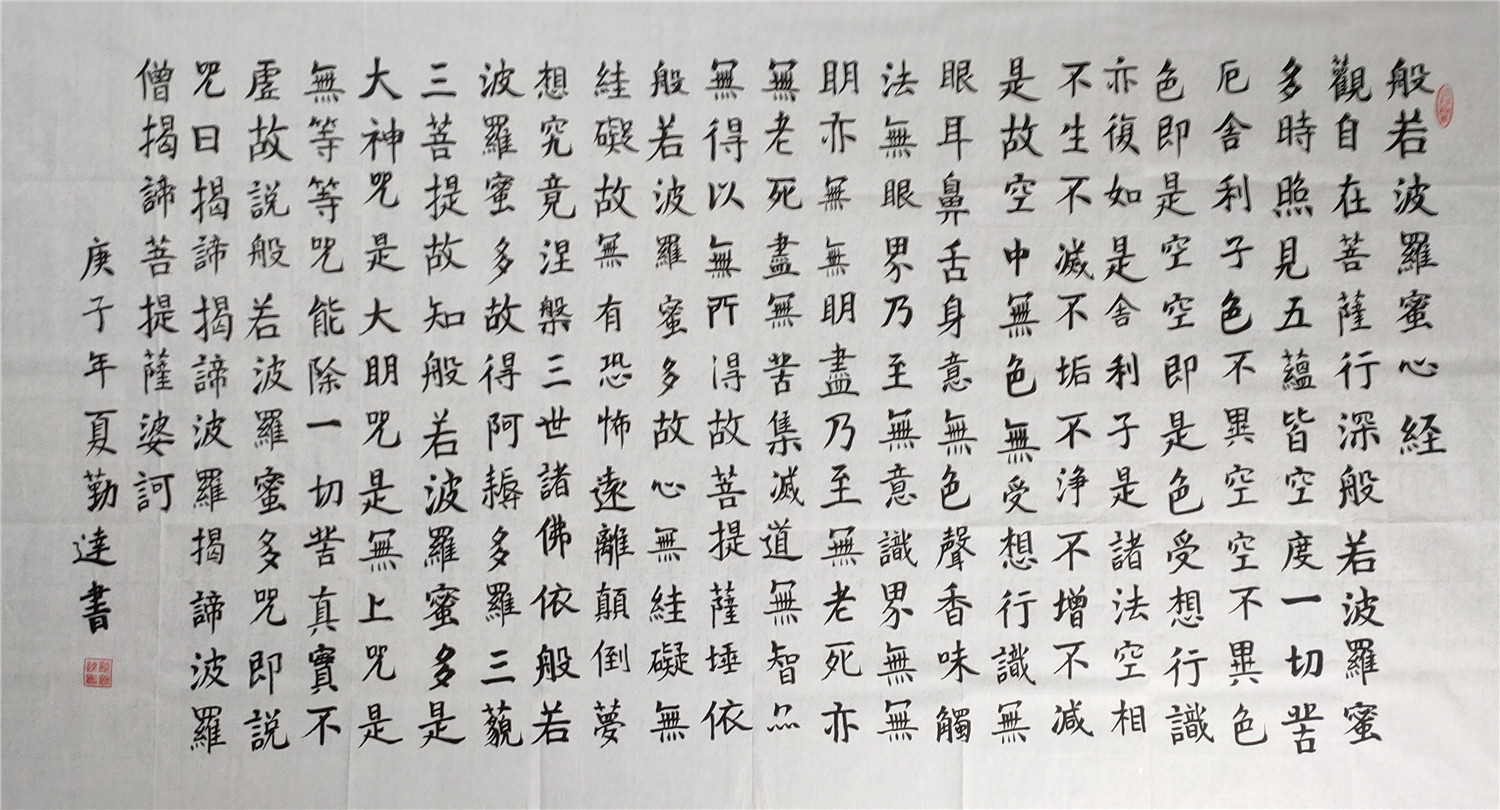 般若波羅蜜心経
觀自在菩薩行深般若波羅蜜
多時照見五蘊皆空度一切苦
厄舍利子色不異空空不異色
色即是空空即是色受想行識
亦復如是舍利子是諸法空相
不生不滅不垢不浄不增不減
是故空中無色無受想行識無
眼耳鼻舌身意無色聲香味觸
法無眼界乃至無意識界無無
明亦無無明盡乃至無老死亦
無老死盡無苦集滅道無智亦
無得以無所得故菩提薩埵依
般若波羅蜜多故心無絓礙無
絓礙故無有恐怖遠離顛倒夢
想究竟涅槃三世諸佛依般若
波羅蜜多故得阿耨多羅三藐
三菩提故知般若波羅蜜多是
大神咒是大明咒是無上咒是
無等等咒能除一切苦真實不
虛故説般若波羅蜜多咒即説
咒曰揭諦揭諦波羅揭諦波羅
僧揭諦菩提薩婆訶
庚子年夏勤達書